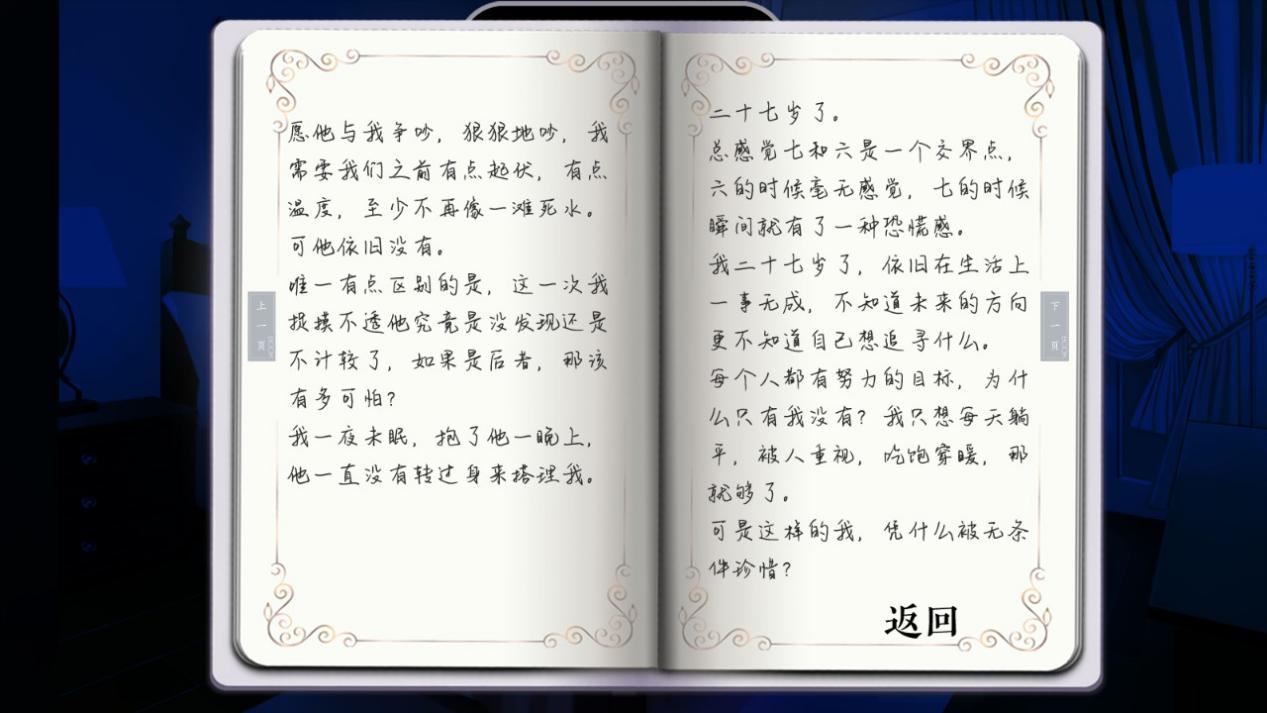 愿他与我争吵，狠狠地吵，我
需要我们之前有点起伏，有点
温度，至少不再像一滩死水。
可他依旧没有。
唯一有点区别的是，这一次我
捉摸不透他究竟是没发现还是
不计较了，如果是后者，那该
有多可怕？
我一夜未眠，抱了他一晚上，
他一直没有转过身来搭理我。
上一页
二十七岁了。
总感觉七和六是一个交界点，
六的时候毫无感觉，七的时候
瞬间就有了一种恐慌感。
我二十七岁了，依旧在生活上
一事无成，不知道未来的方向
更不知道自己想追寻什么。
每个人都有努力的目标，为什
么只有我没有？我只想每天躺
平，被人重视，吃饱穿暖，那
就够了。
可是这样的我，凭什么被无条
件珍惜？
下一页
返回